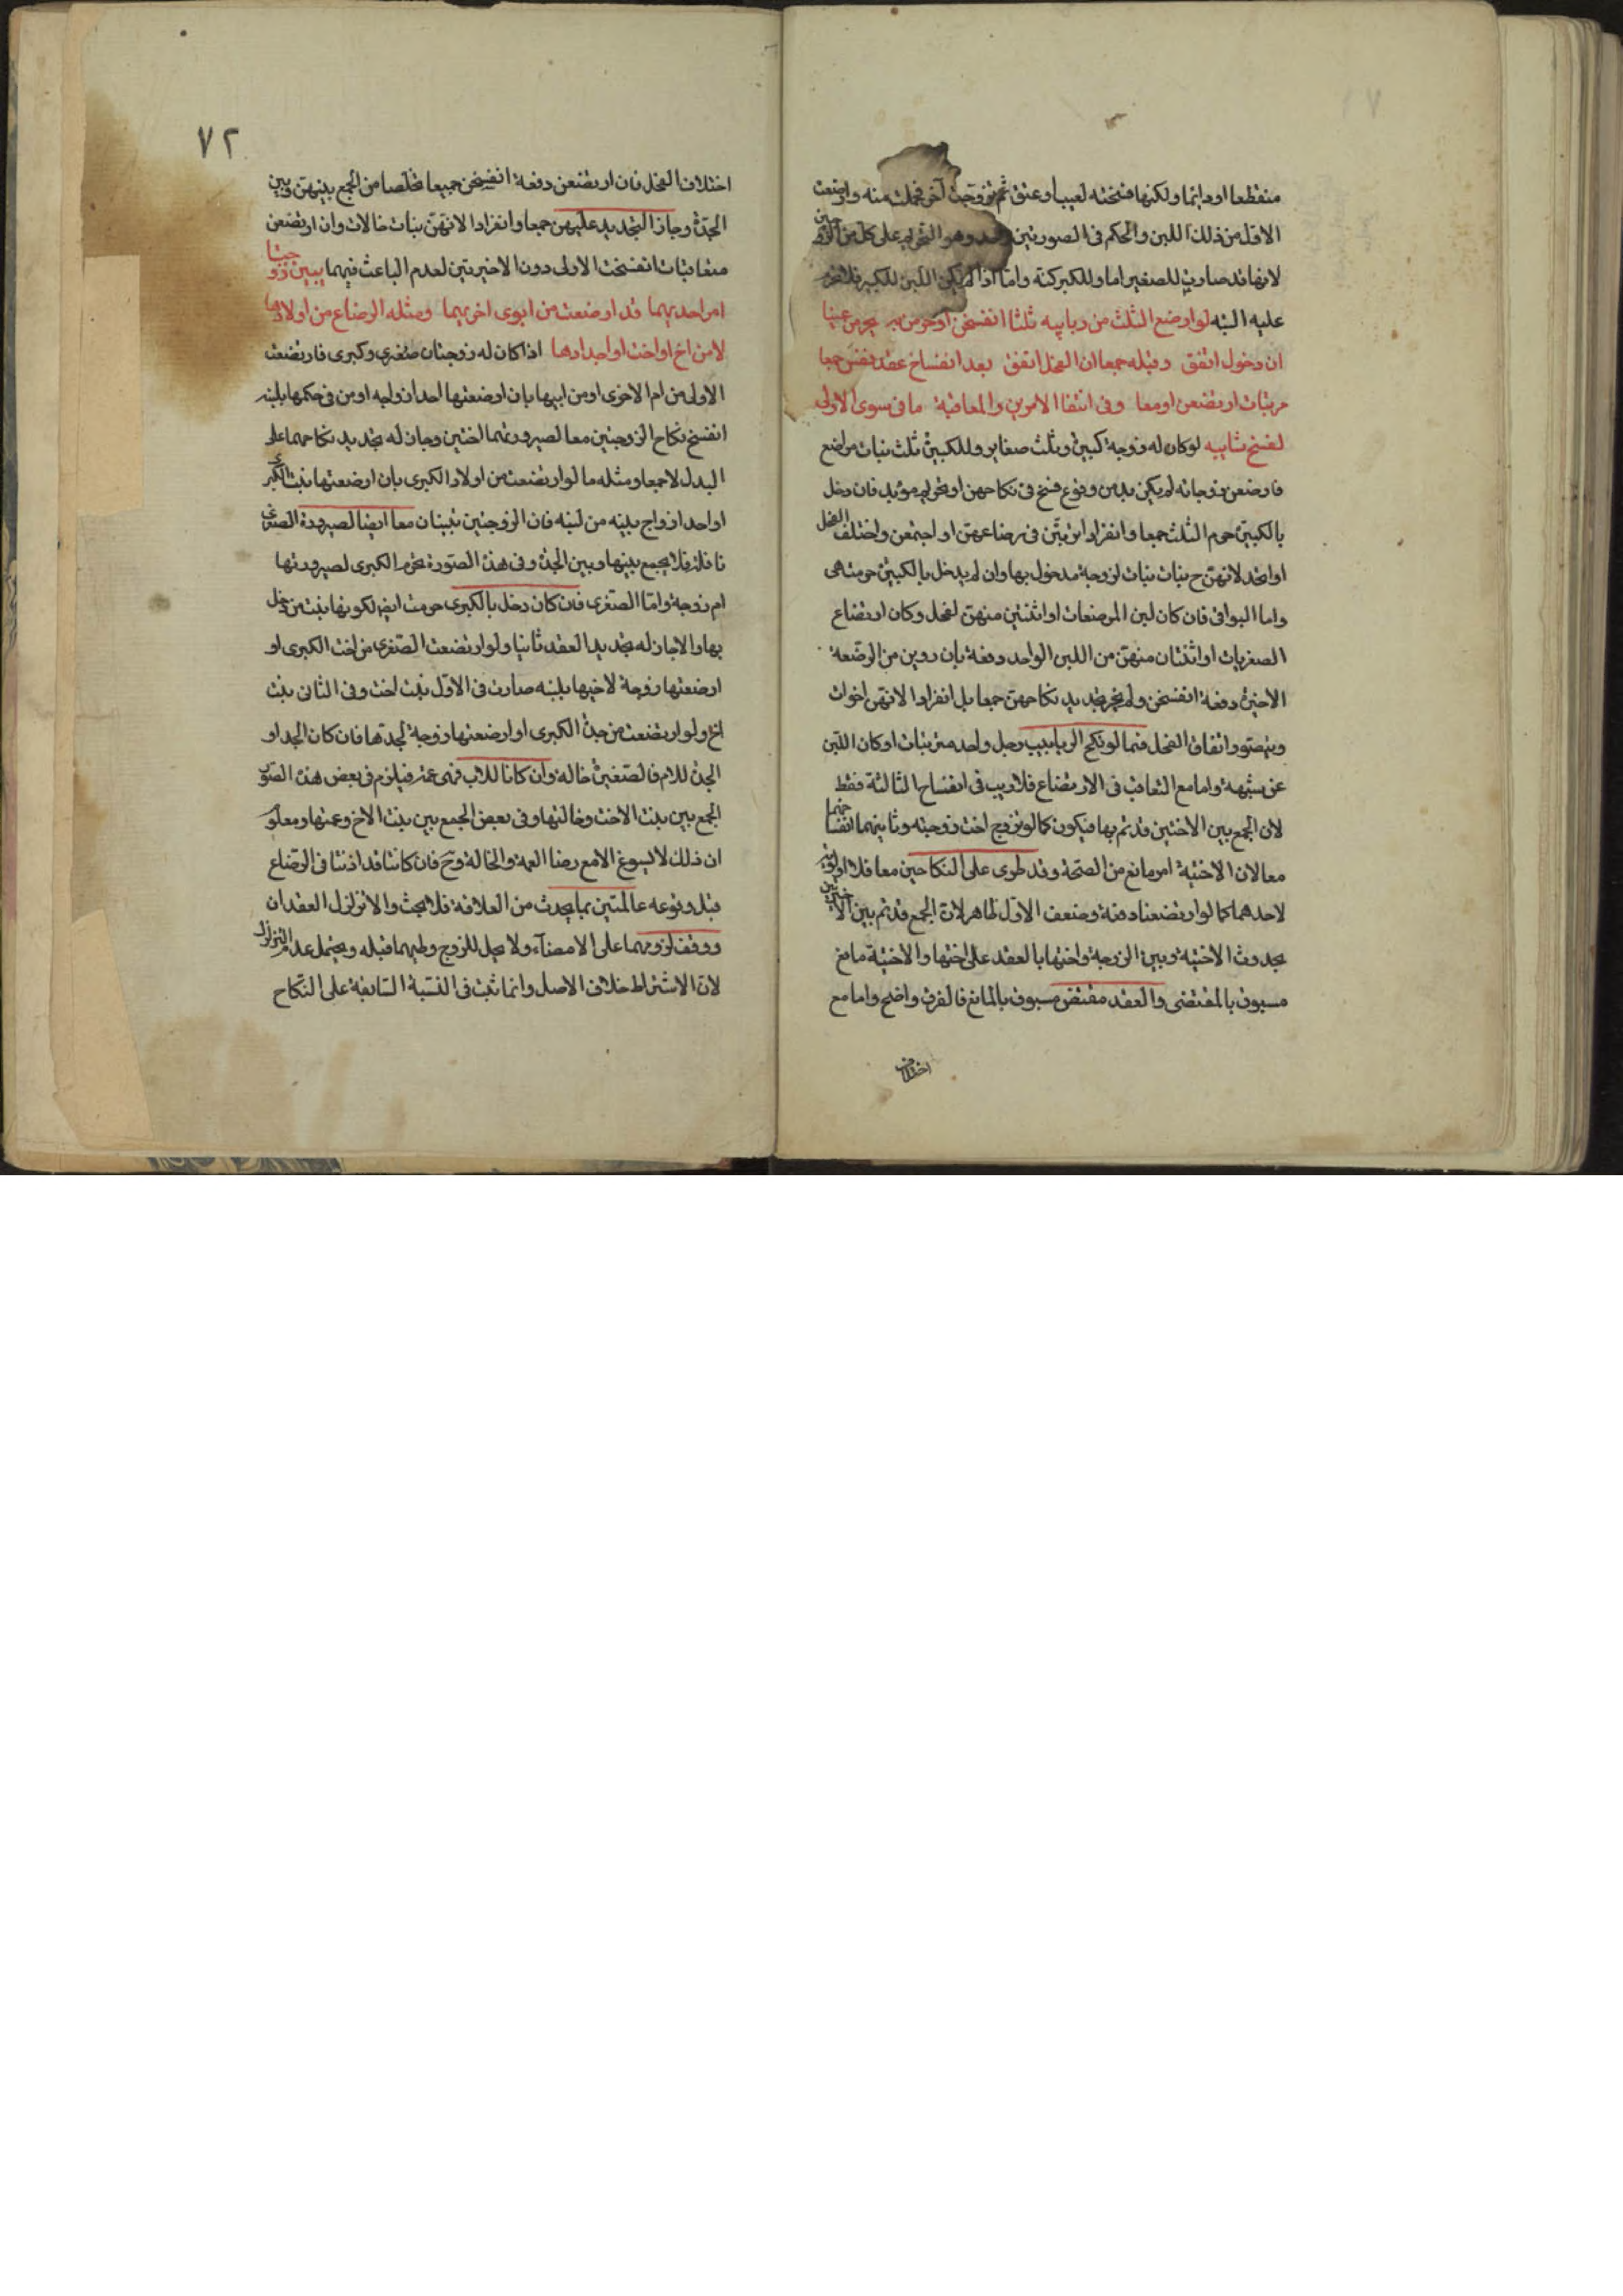 منقطعا او دائما ولكنها فسخته لعيب او عتق ثم تزوجت آخر فحملت منه وارضعت
الاول من ذلك اللبن والحكم فى الصورتين وهو التحريم على كل من الزوجين
لانها قد صارت للصغير اما وللكبر كنة واما اذا لم يكن اللبن للكبير فلا تحرم
عليه البتة لو ارضع الثلث من ربايبه ثلثا انفسخن يحرمن عينا
ان دخول اتفق وقبله جمعا ان الفحل اتفق بعد انفساخ عقد جمعا
مرتبات ارتضعن او معا وفى انتفا الامرين والمعاقبة ما فى سوى الاولى
لفسخ شايبه لو كان له زوجة كبيرة وثلث صغاير وللكبيرة ثلث بنات مراضع
فارضعن زوجاته لم يكن بد من وقوع فسخ فى نكاحهن او تحريم مؤبد فان دخل
بالكبيرة حرم الثلث جمعا وانفرادا ترتبن فى رضاعهن او اجتمعن واختلف الفحل
او اتحد لانهن ح بنات بنات لزوجة مدخول بها وان لم يدخل بالكبيرة حرمت هى
واما البواقى فان كان لبن المرضعات او اثنتين منهن لفحل وكان ارتضاع
الصغريات او اثنتان منهن من اللبن الواحد دفعة بان روين من الرضعة
الاخيرة دفعة انفسخن ولم يجز تجديد نكاحهن جمعا بل انفرادا لانهن اخوات
ويتصور اتفاق الفحل فيما لو نكح الربايب رجل واحد مترتبات او كان اللبن
عن شبهة واما مع التعاقب فى الارتضاع فلا ريب فى انفساخ الثالثة فقط
لان الجمع بين الاختين قد تم بها فيكون كما لو تزوج اخت زوجته وثانيهما انفساخهما
معا لان الاختية امر مانع من الصحة وقد طرى على النكاحين معا فلا اولوية
لاحدهما كما لو ارتضعنا دفعة وضعف الاول ظاهر لان الجمع قد تم بين الاختين
بحدوث الاختية وبين الزوجة واختها بالعقد على اختها والاختية مانع
مسبوق بالمقتضى والعقد مقتض مسبوق بالمانع فالفرق واضح واما مع
اختلاف
٧٢
اختلاف الفحل فان ارتضعن دفعة انفسخن جميعا تخلصا من الجمع بينهن وبين
الجدة وجاز التجديد عليهن جمعا وانفرادا لانهن بنات خالات وان ارتضعن
متعاقبات انفسخت الاولى دون الاخيرتين لعدم الباعث فيهما يبين زوجتا
امر احديهما قد ارضعت من ابوى اخريهما ومثله الرضاع من اولادها
لا من اخ او اخت او اجدادها اذا كان له زوجتان صغرى وكبرى فارتضعت
الاولى من ام الاخرى او من ابيها بان ارضعتها احد ازواجه او من فى حكمها بلبنه
انفسخ نكاح الزوجتين معا لصيرورتهما اختين وجاز له تجديد نكاحهما على
البدل لا جمعا ومثله ما لو ارتضعت من اولاد الكبرى بان ارضعتها بنت الكبرى
او احد ازواج بنيه من لبنه فان الزوجتين تبينان معا ايضا لصيرورة الصغرى
نافلة فلا يجمع بينها وبين الجدة وفى هذه الصورة تحرم الكبرى لصيرورتها
ام زوجة واما الصغرى فان كان دخل بالكبرى حرمت ايضا لكونها بنت من دخل
بها والا جاز له تجديد العقد ثانيا ولو ارتضعت الصغرى من اخت الكبرى او
ارضعتها زوجة لاخيها بلبنه صارت فى الاول بنت اخت وفى الثانى بنت
اخ ولو ارتضعت من جدة الكبرى او ارضعتها زوجة لجدها فان كان الجد او
الجدة للام فالصغيرة خالة وان كانا للاب فهى عمة فيلزم فى بعض هذه الصور
الجمع بين بنت الاخت وخالتها وفى بعض الجمع بين بنت الاخ وعمتها ومعلوم
ان ذلك لا يسوغ الا مع رضا العمة والخالة وح فان كانتا قد اذنتا فى الرضاع
قبل وقوعه عالمتين بما يحدث من العلاقة فلا بحث والا تزلزل العقدان
ووقف لزومهما على الامضاء ولا يحل للزوج وطيهما قبله ويحتمل عدم التزلزل
لان الاشتراط خلاف الاصل وانما ثبت فى النسبة السابقة على النكاح